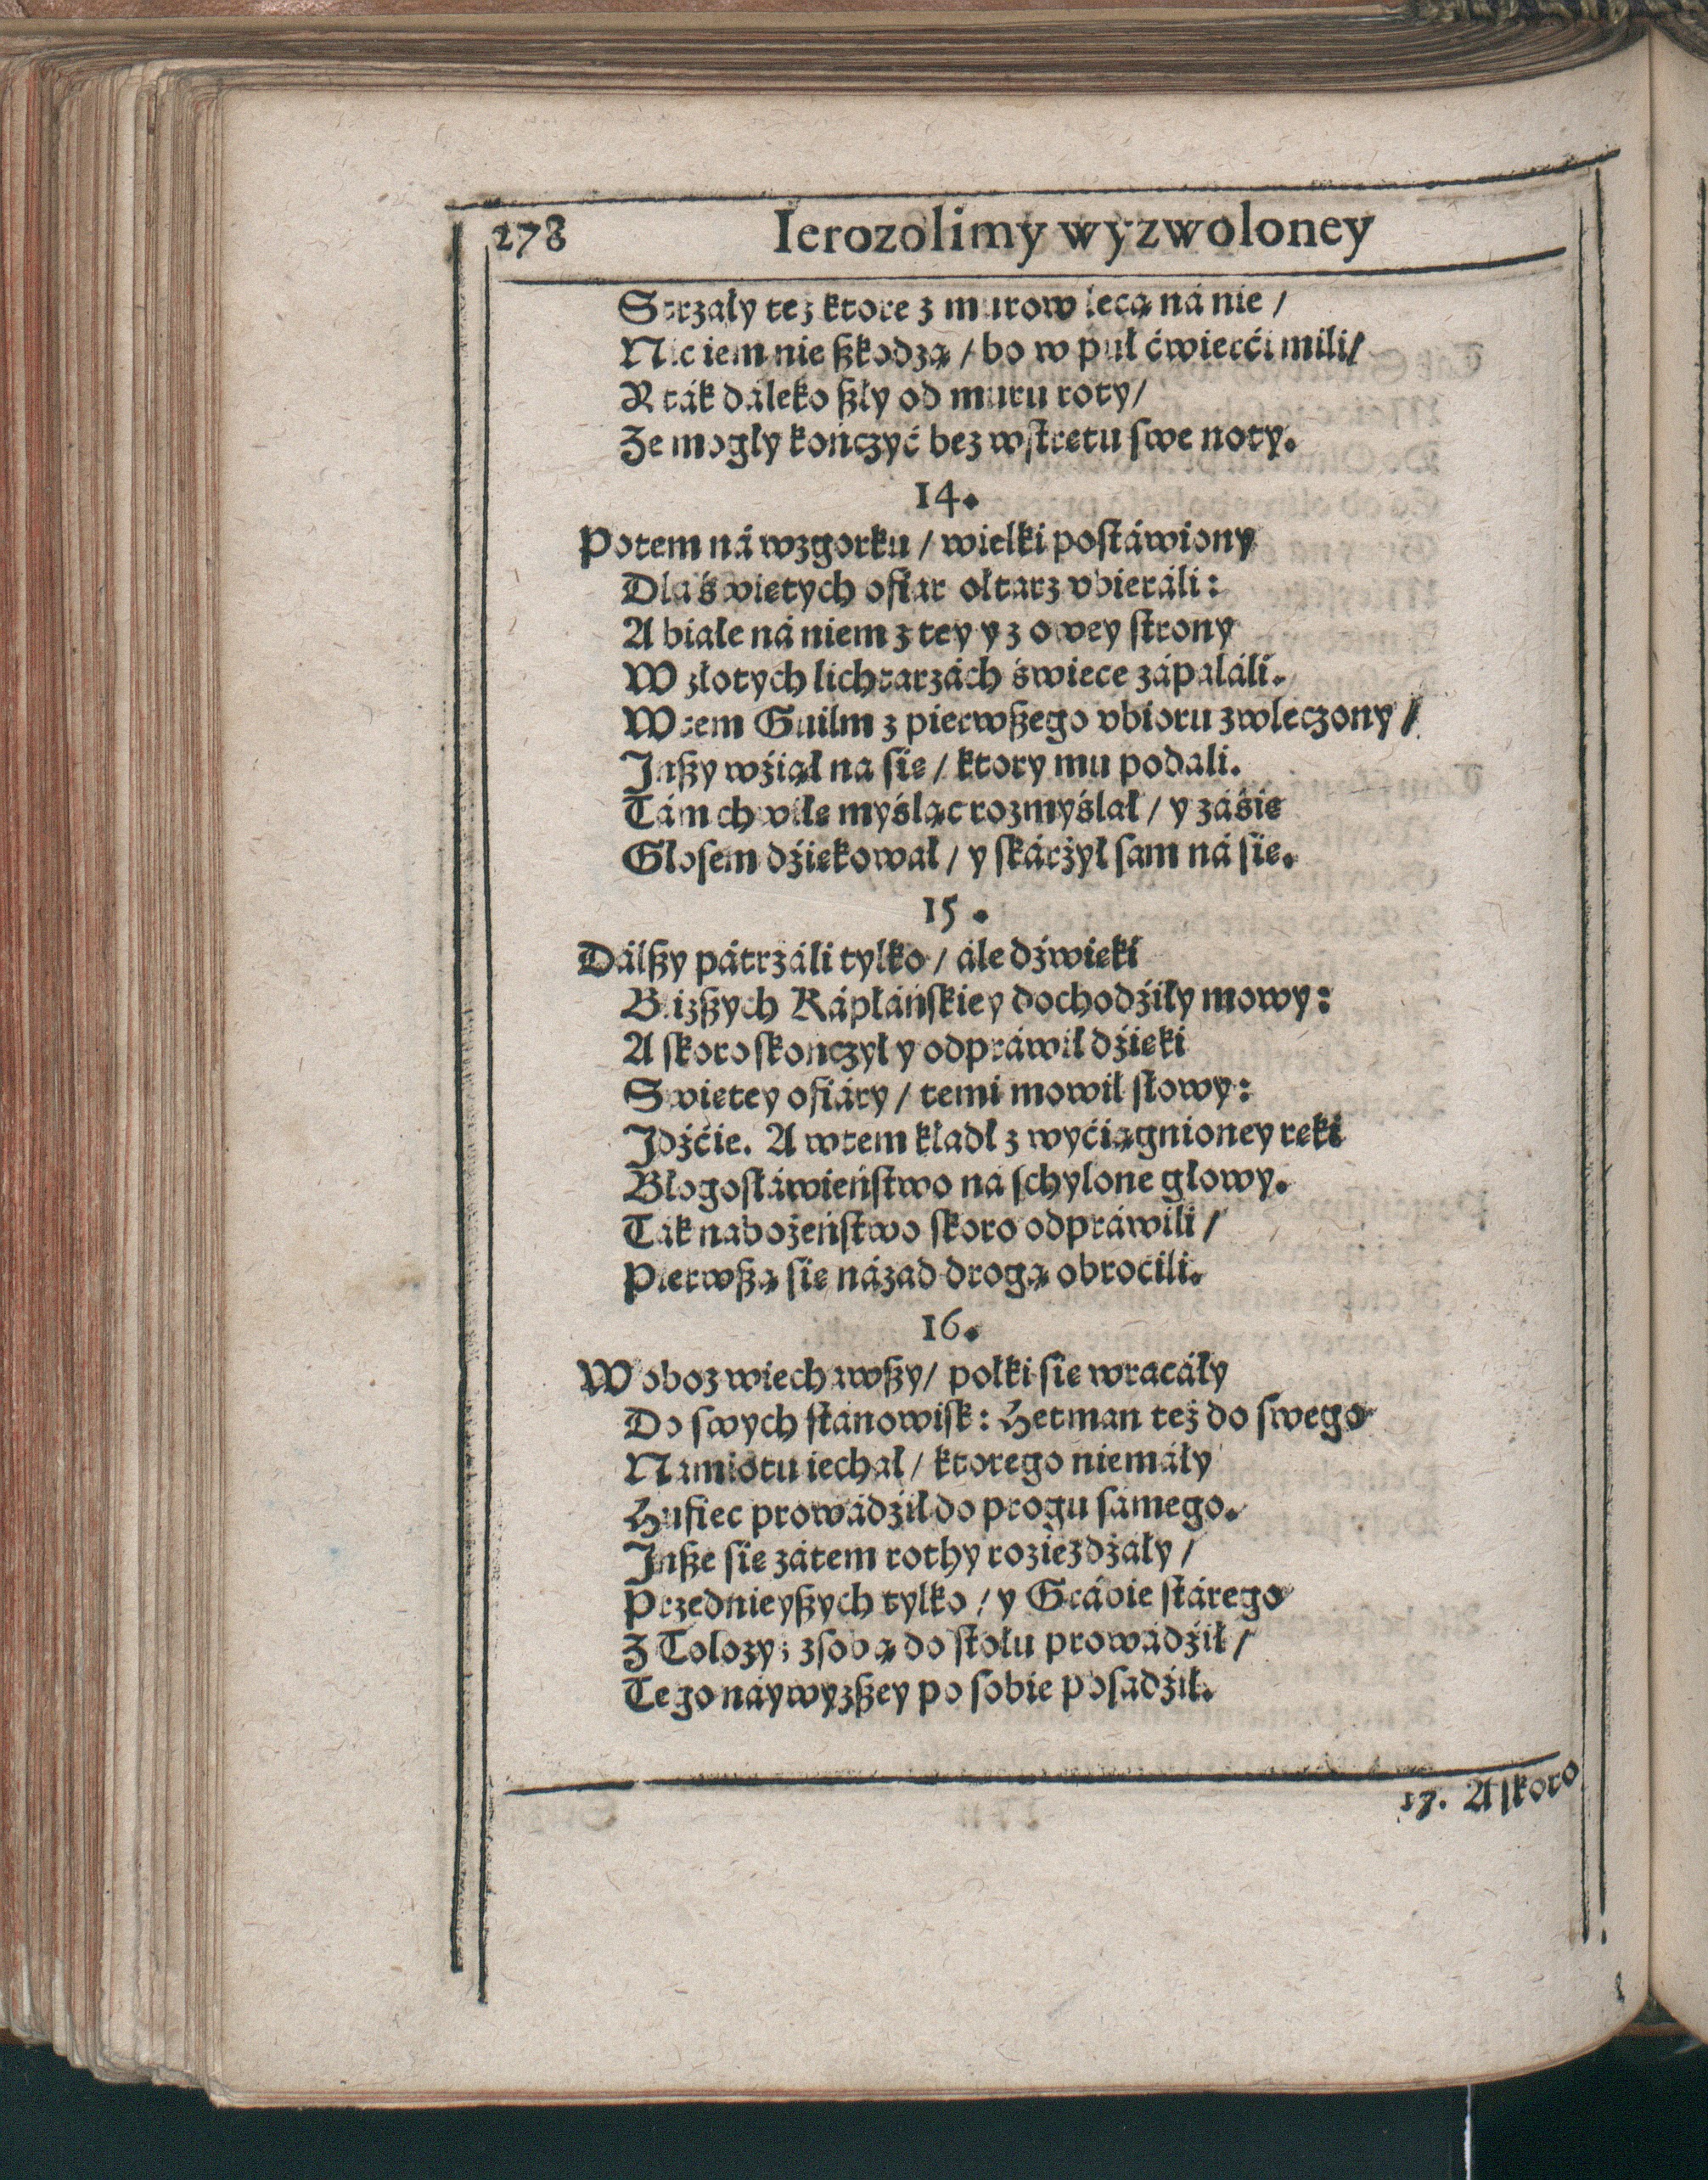 278 Ierozolimy wyzwoloney
Strzały też ktore z murow lecą ná nie /
Nic iem nie ßkodzą / bo w puł ćwierći mili /
Y ták dáleko ßły od muru roty /
Ze mogły kończyć bez wſtrętu ſwe noty.
14.
Potem ná wzgorku / wielki poſtáwiony
Dla świętych ofiar ołtarz vbieráli:
A białe ná niem z tey y z owey ſtrony
W złotych lichtarzách świece zápaláli.
Wtem Guilm z pierwßego vbioru zwleczony /
Inßy wźiął na ſię / ktory mu podali.
Tám chwilę myśląc rozmyślał / y záśię
Głoſem dźiękował / y ſkárżył ſam ná ſię.
15.
Dálßy pátrzáli tylko / ále dźwięki
Bliżßych Kápłáńſkiey dochodźiły mowy:
A ſkoro ſkonczył y odpráwił dźięki
Swiętey ofiáry / temi mowił ſłowy:
Idźćie. A wtem kładł z wyćiągnioney ręki
Błogoſłáwieńſtwo ná ſchylone głowy.
Ták nabożeńſtwo ſkoro odpráwili /
Pierwßą ſię názad drogą obrocili.
16.
W oboz wiechawßy / połki ſię wracáły
Do ſwych ſtánowiſk: Hetman też do ſwego
Namiotu iechał / ktorego niemáły
Hufiec prowádźił do progu ſámego.
Inße ſię zátem rothy rozieżdżáły /
Przednieyßych tylko / y Grábię ſtárego
Z Tolozy; z ſobą do ſtołu prowádźił /
Tego náywyzßey po ſobie poſadźił.
17. A ſkoro